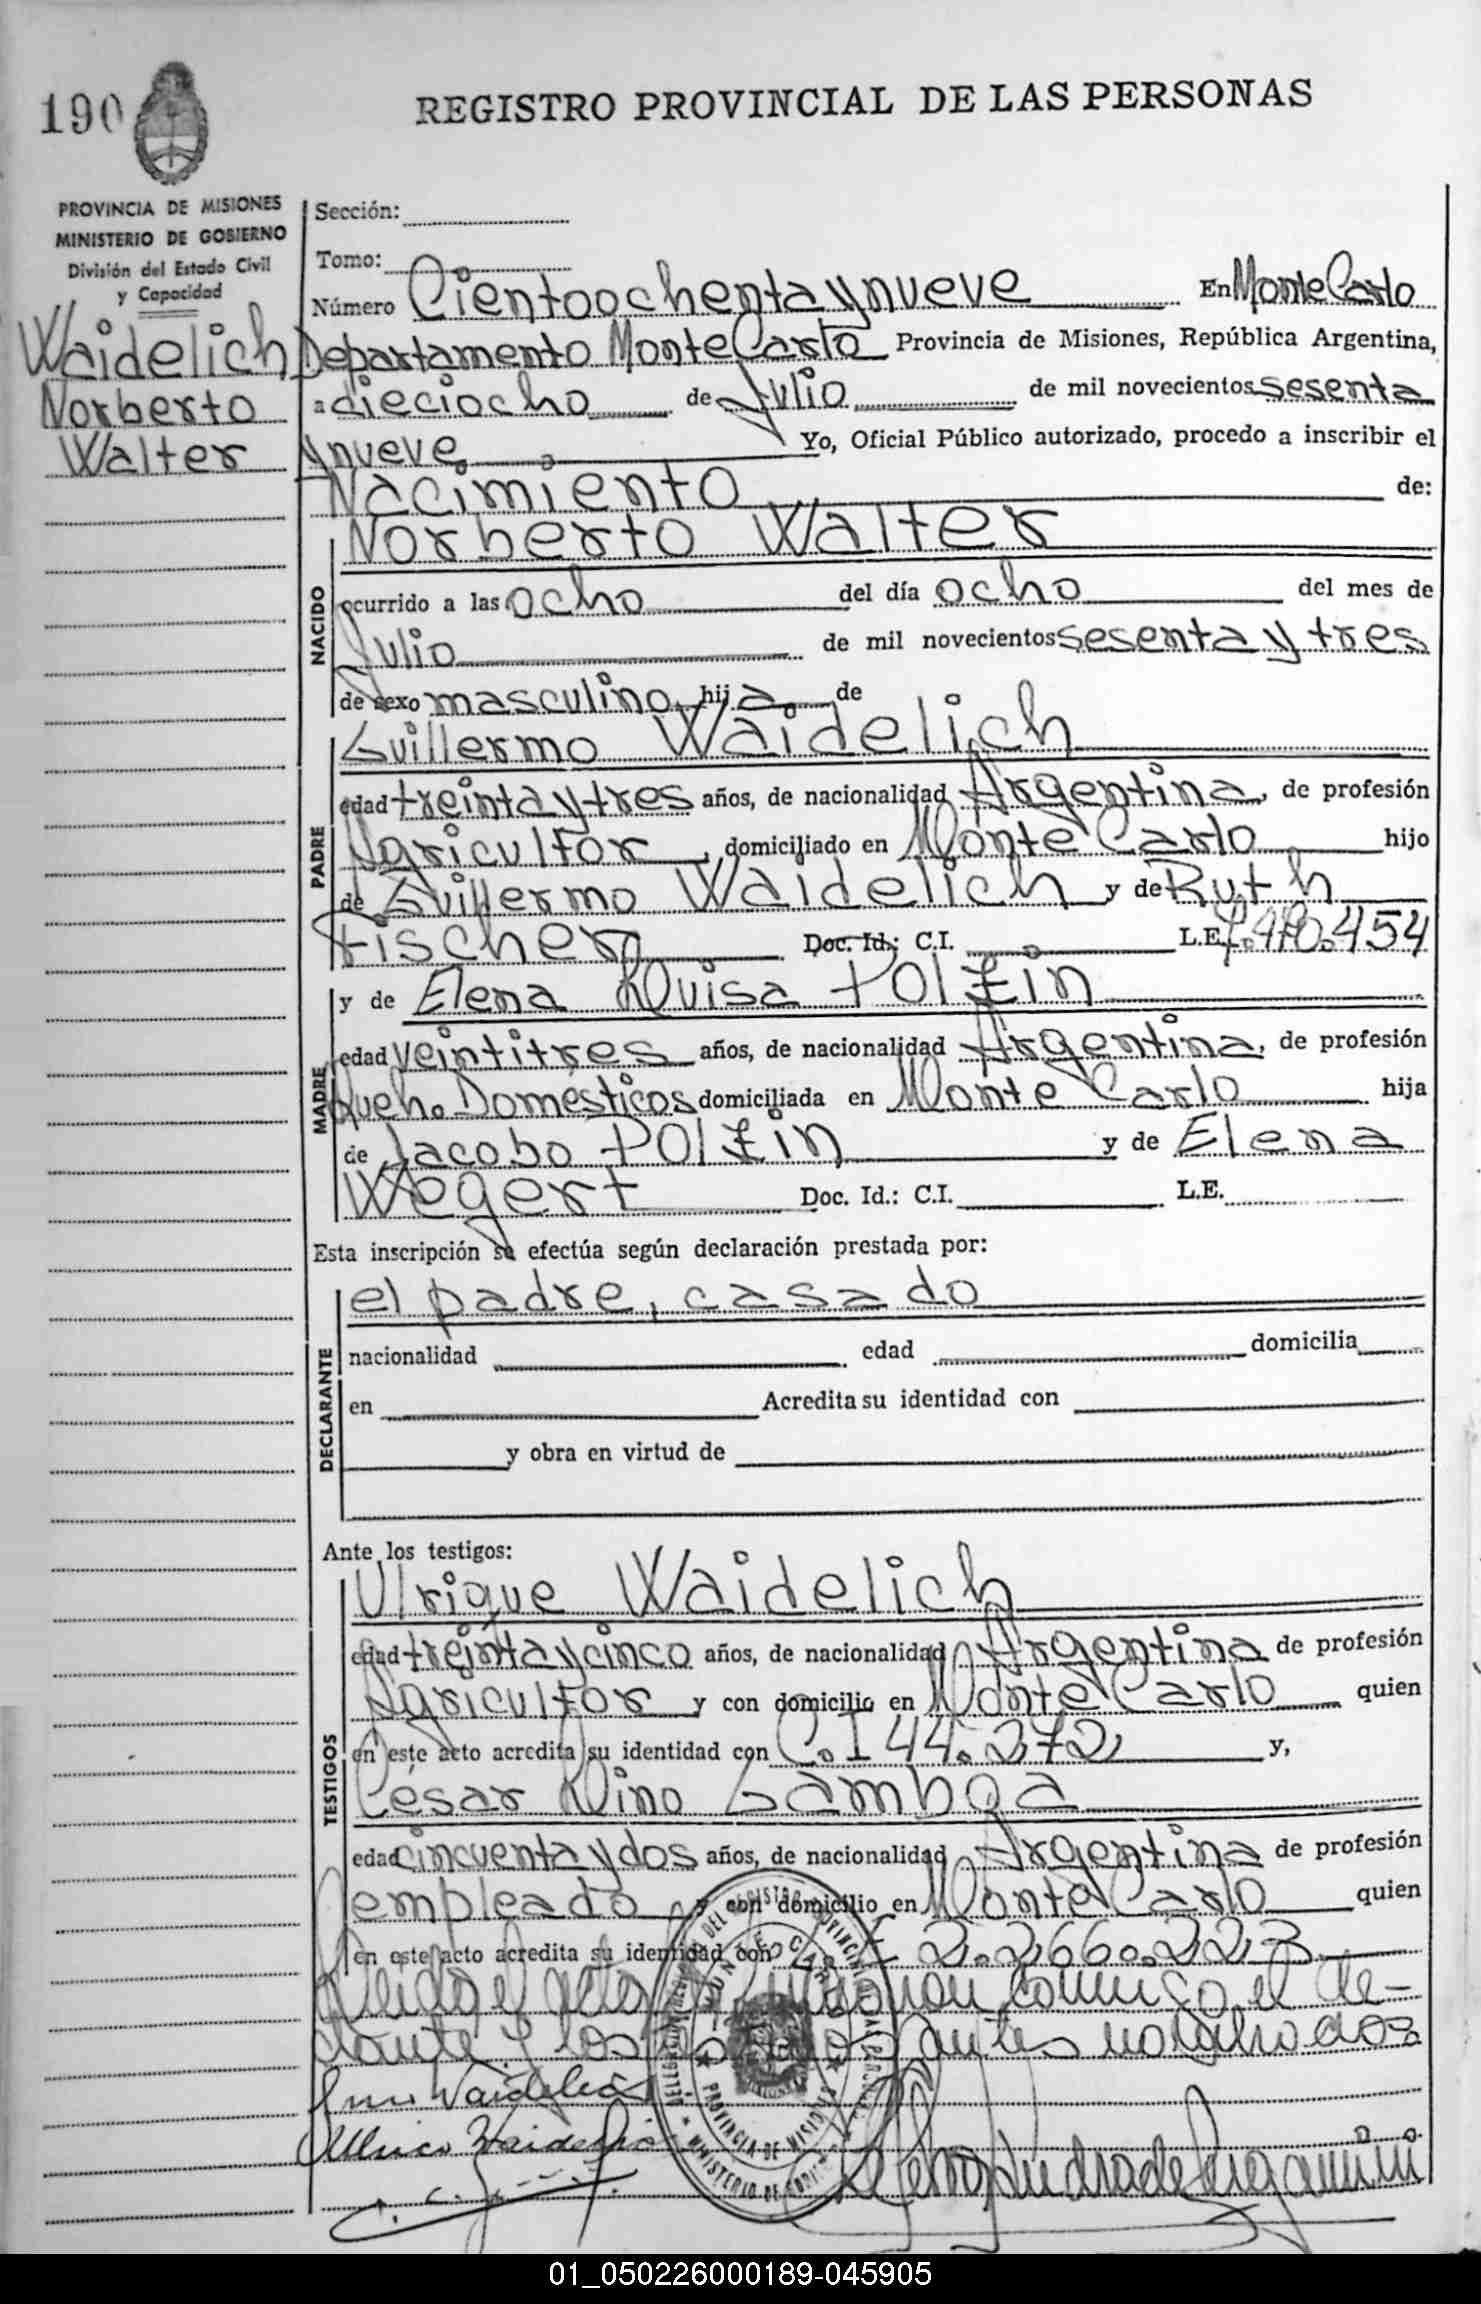 190
REGISTRO PROVINCIAL DE LAS PERSONAS
PROVINCIA DE MISIONES
MINISTERIO DE GOBIERNO
División del Estado Civil
y Capacidad
Waidelich
Norberto
Walter
Sección:
Tomo:
Número Ciento ochenta y nueve En Monte Carlo
Departamento Monte Carlo Provincia de Misiones, República Argentina,
a dieciocho de Julio de mil novecientos sesenta
y nueve. Yo, Oficial Público autorizado, procedo a inscribir el
Nacimiento de:
NACIDO
Norberto Walter
ocurrido a las ocho del día ocho del mes de
Julio de mil novecientos sesenta y tres
de sexo masculino hij a de
PADRE
Guillermo Waidelich
edad treinta y tres años, de nacionalidad Argentina, de profesión
Agricultor, domiciliado en Monte Carlo hijo
de Guillermo Waidelich y de Ruth
Fischer Doc. Id.: C.I. L.E. 7.410.454
MADRE
y de Elena Luisa Polzin
edad veintitres años, de nacionalidad Argentina, de profesión
Queh. Domésticos domiciliada en Monte Carlo hija
de Jacobo Polzin y de Elena
Wegert Doc. Id.: C.I. L.E.
Esta inscripción se efectúa según declaración prestada por:
DECLARANTE
el padre, casado
nacionalidad edad domicilia
en Acredita su identidad con
y obra en virtud de
Ante los testigos:
TESTIGOS
Ulrique Waidelich
edad treinta y cinco años, de nacionalidad Argentina de profesión
Agricultor y con domicilio en Monte Carlo quien
en este acto acredita su identidad con C.I 44.272, y,
César Lino Gamboa
edad cincuenta y dos años, de nacionalidad Argentina de profesión
empleado y con domicilio en Monte Carlo quien
en este acto acredita su identidad con 2.266.223
Leido el acta conmigo el de-
clarante y los antes nombrados
Waidelich
Ulrico Waidelich
MONTE CARLO
PROVINCIA DE MISIONES
01_050226000189-045905